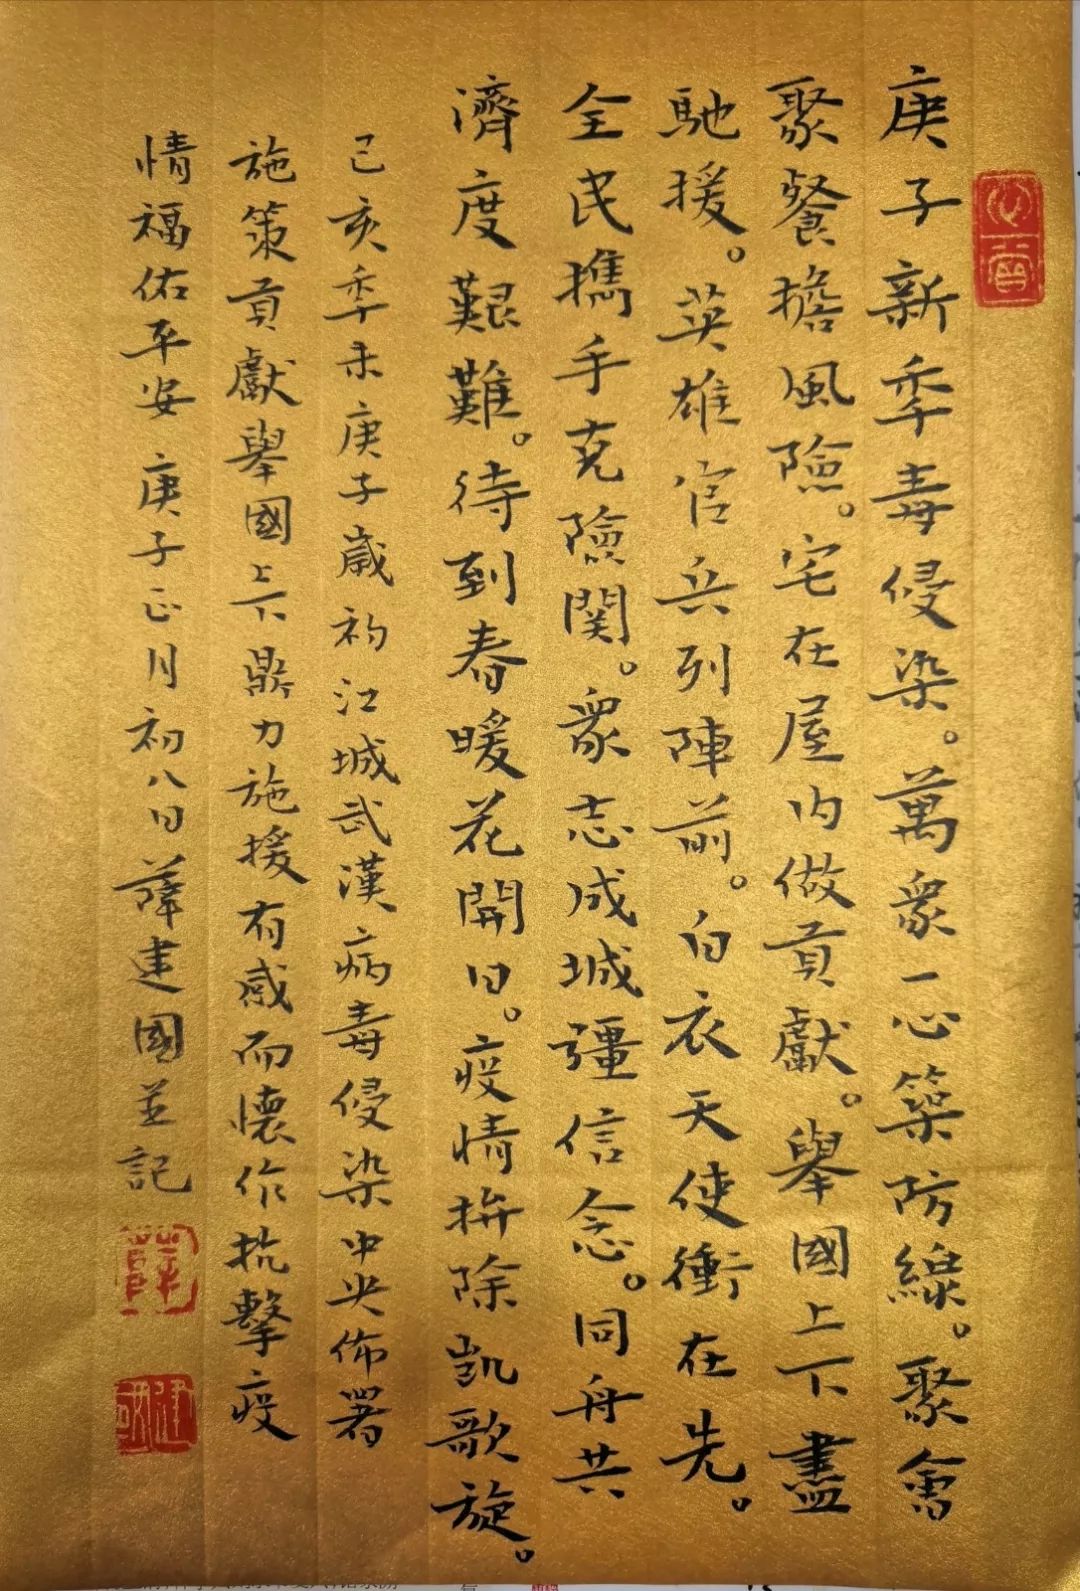 庚子新秊毒侵染。萬衆一心築防線。聚會
聚餐擔風險。宅在屋内做貢獻。舉國上下盡
馳援。英雄官兵列陣前。白衣天使衝在先。
全民攜手克險関。衆志成城彊信念。同舟共
濟度艱難。待到春暖花開日。疫情摒除凱歌旋。
己亥秊末庚子歲初江城武漢病毒侵染中央佈署
施策貢獻舉國上下鼎力施援有感而懷作抗擊疫
情福佑平安庚子正月初八日薛建國並記